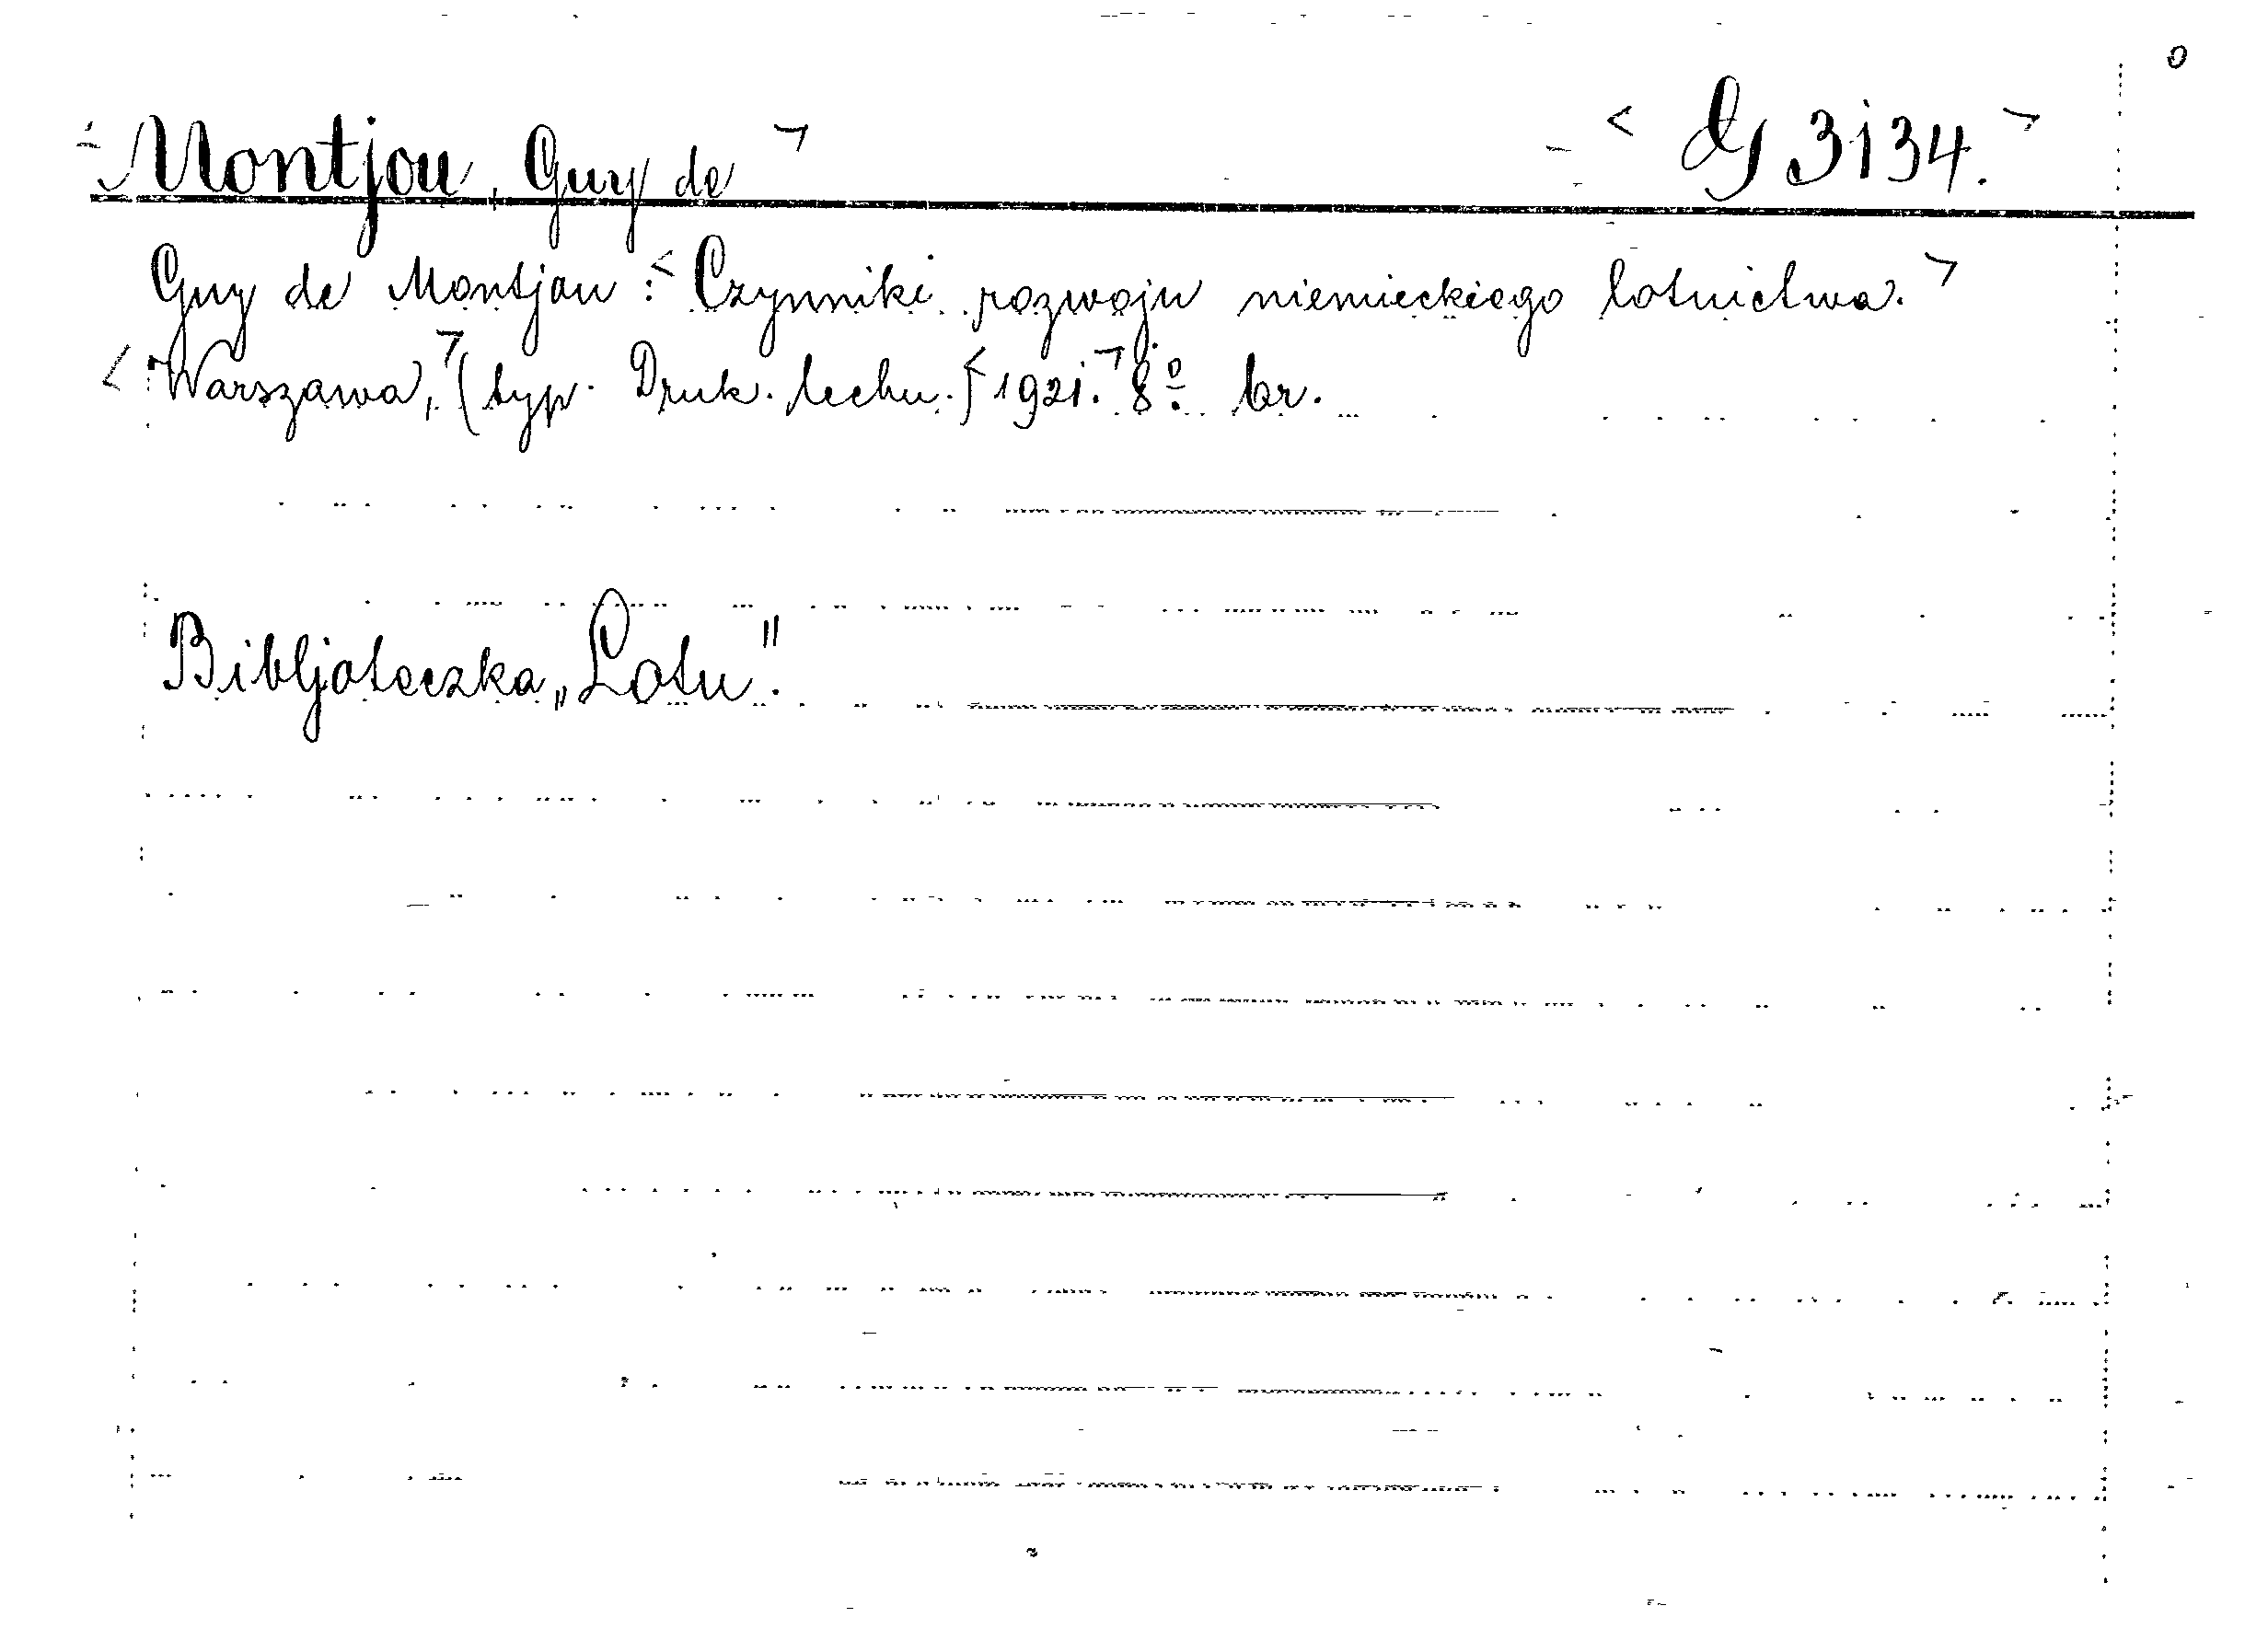 Montjou, Guy de < G 3134. >
Guy de Montjou: < Czynniki rozwoju niemieckiego lotnictwa. >
< Warszawa, > (typ. Druk. techn.) < 1921. > 8º. br.
Bibljoteczka „Lotu".